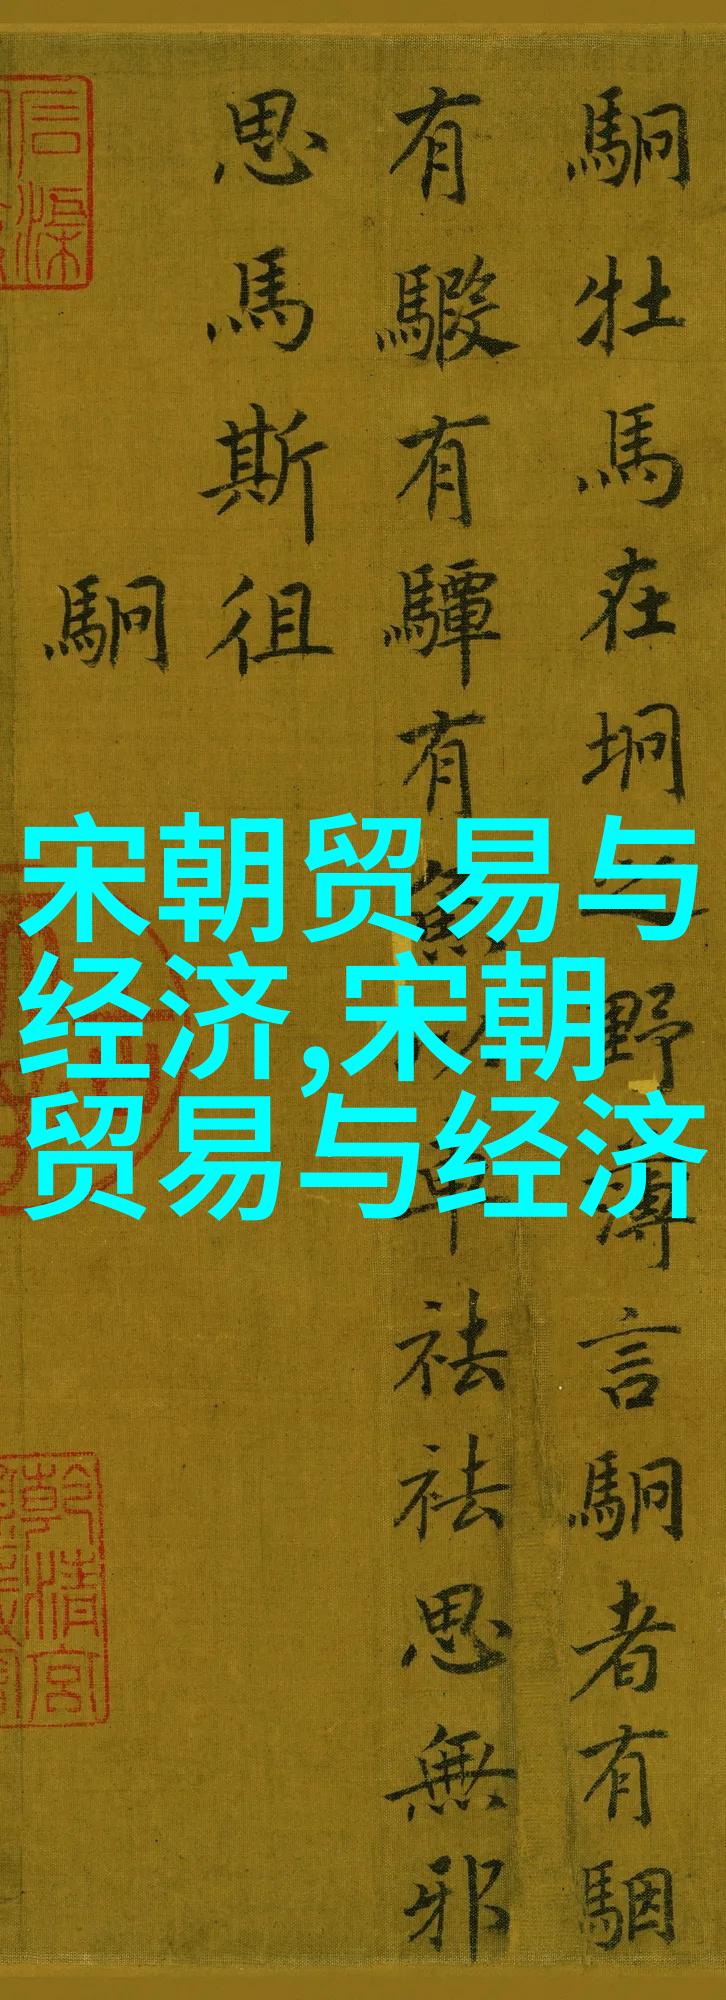 駉牡馬在坰之野薄言駉者有駰
有騢有驔有魚以車祛祛思無邪
思馬斯徂
駉
宋朝贸易与
经济,宋朝
贸易与经济
乾清宫